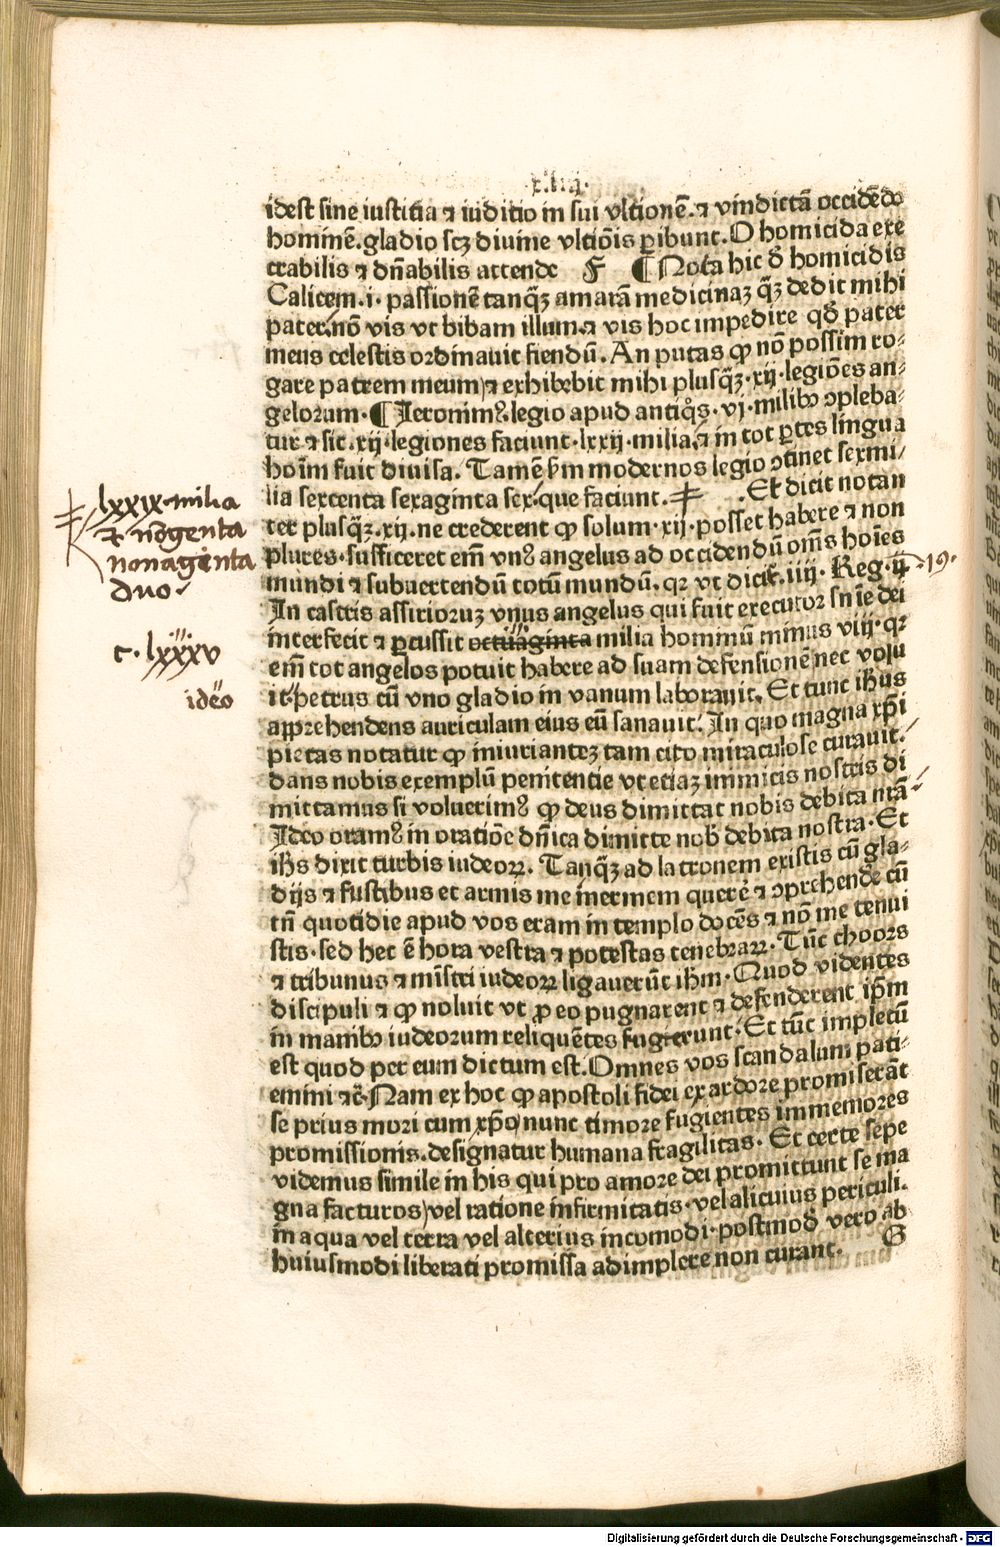 idest sine iusticia ⁊ iuditio in sui vltionē. ⁊ vindictā occidēdo
hominē. gladio scꝫ diuine vltiōis ꝑibunt. O homicida exe
crabilis ⁊ dn̄abilis attende F ¶ Nota hic ꝺ̄ homicidis
Calicem .i. passionē tanqꝫ̄ amarā medicinaꝫ qꝫ̄ dedit mihi
pater. nō vis vt bibam illum. ⁊ vis hoc impedire qd̄ pater
meus celestis ordinauit fiendū. An putas ꝙ nō possim ro⸗
gare patrem meum) ⁊ exhibebit mihi plusqꝫ̄ · xij · legiōes an⸗
gelorum · ¶ Ieronimꝰ. legio apud antiq̊s · vj · milibꝰ ↄpleba⸗
tur ⁊ sic · xij · legiones faciunt · lxxij · milia. ⁊ in tot ꝑtes lingua
hoīm fuit diuisa. Tamē ẜm modernos legio ↄtinet sexmi⸗
lia sexcenta sexaginta sex. que faciunt. ‡ · Et dicit notan
ter plusqꝫ̄. xij. ne crederent ꝙ solum · xij · posset habere ⁊ non
plures · sufficeret em̄ vnꝰ angelus ad occidendū om̄s hoīes
mundi ⁊ subuertendū totū mundū. qꝛ vt dicit̄. iiij. Reg. · 19 ·
In castris assirioruꝫ vnus angelus qui fuit executor sn̄ie dei
interfecit ⁊ ꝑcussit octuaginta milia hominū minus viij · qꝛ
em̄ tot angelos potuit habere ad suam defensionē nec volu
it · petrus cū vno gladio in vanum laborauit. Et tunc ih̄us
apprehendens auriculam eius eū sanauit. In quo magna xp̄i
pietas notatur ꝙ iniurianteꝫ tam cito miraculose curauit.
dans nobis exemplū penitentie vt etiaꝫ inimicis nostris di
mittamus si voluerimꝰ ꝙ deus dimittat nobis debita nr̄a⸗
Ideo oramꝰ in oratiōe dn̄ica dimitte nob̄ debita nostra · Et
ih̄s dixit turbis iudeoꝝ. Tanqꝫ̄ ad latronem existis cū gla⸗
dijs ⁊ fustibus et armis me inermem querē ⁊ ↄprehendē cū
tn̄ quotidie apud vos eram in templo docēs ⁊ nō me tenui
stis · sed hec ē hora vestra ⁊ potestas tenebraꝝ · Tūc choors
⁊ tribunus ⁊ mīstri iudeoꝝ ligauerūt ih̄m · Quod videntes
discipuli ⁊ ꝙ noluit vt ꝓ eo pugnarent ⁊ defenderent ip̄m
in manibꝰ iudeorum reliquētes fugierunt · Et tūc impletū
est quod per eum dictum est. Omnes vos scandalum pati⸗
emini ⁊c̄ · Nam ex hoc ꝙ apostoli fidei ex ardore promiserāt
se prius mori cum xp̄o) nunc timore fugientes immemores
promissionis. designatur humana fragilitas · Et certe sepe
videmus simile in his qui pro amore dei promittunt se ma
gna facturos) vel ratione infirmitatis · vel alicuius periculi.
in aqua vel terra vel alterius incomodi · postmod̄ vero ab
huiusmodi liberati promissa adimplere non curant. G
‡ lxxix · milia
⁊ nōgenta
nonagenta
duo ·
c · lxxxv
ideo
Digitalisierung gefördert durch die Deutsche Forschungsgemeinschaft - DFG